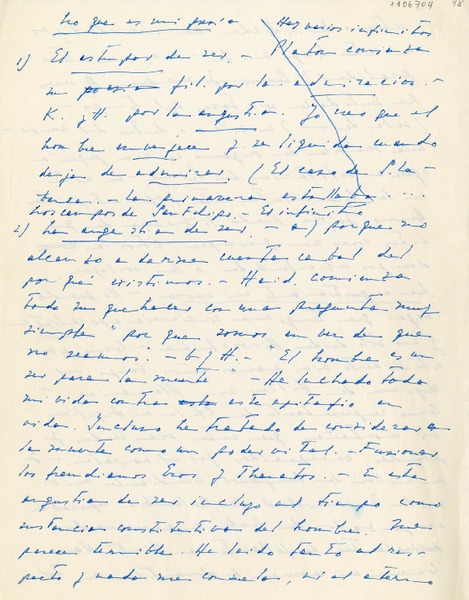 1106704 48
Lo que es mi poesía Hay varios infinitos
1) El estupor de ser. - Platón comienza
su poesía fil. por la admiración. -
K. y H. por la angustia. Yo creo que el
hombre envejece y se liquida cuando
deja de admirar. (El caso de
- La primavera estallaba ...
los campos de San Felipe. - El infinito
2) La angustia de ser. - a) porque no
alcanzo a darme cuenta cabal del
por qué existimos. - Heid. comienza
todo su quehacer con una pregunta muy
simple "por que somos en vez de que
no seamos". - b) H. - "El hombre es un
ser para la muerte" - He luchado toda
mi vida contra este epitafio en
vida. Incluso he tratado de considerar a
la muerte como un poder vital. - Fusionar
los freudianos Eros y Thanatos. - En esta
angustia de ser incluyo al tiempo como
sustancia constitutiva del hombre. Me
parece terrible. He leído tanto al res-
pecto y nada me consuela, ni el eterno